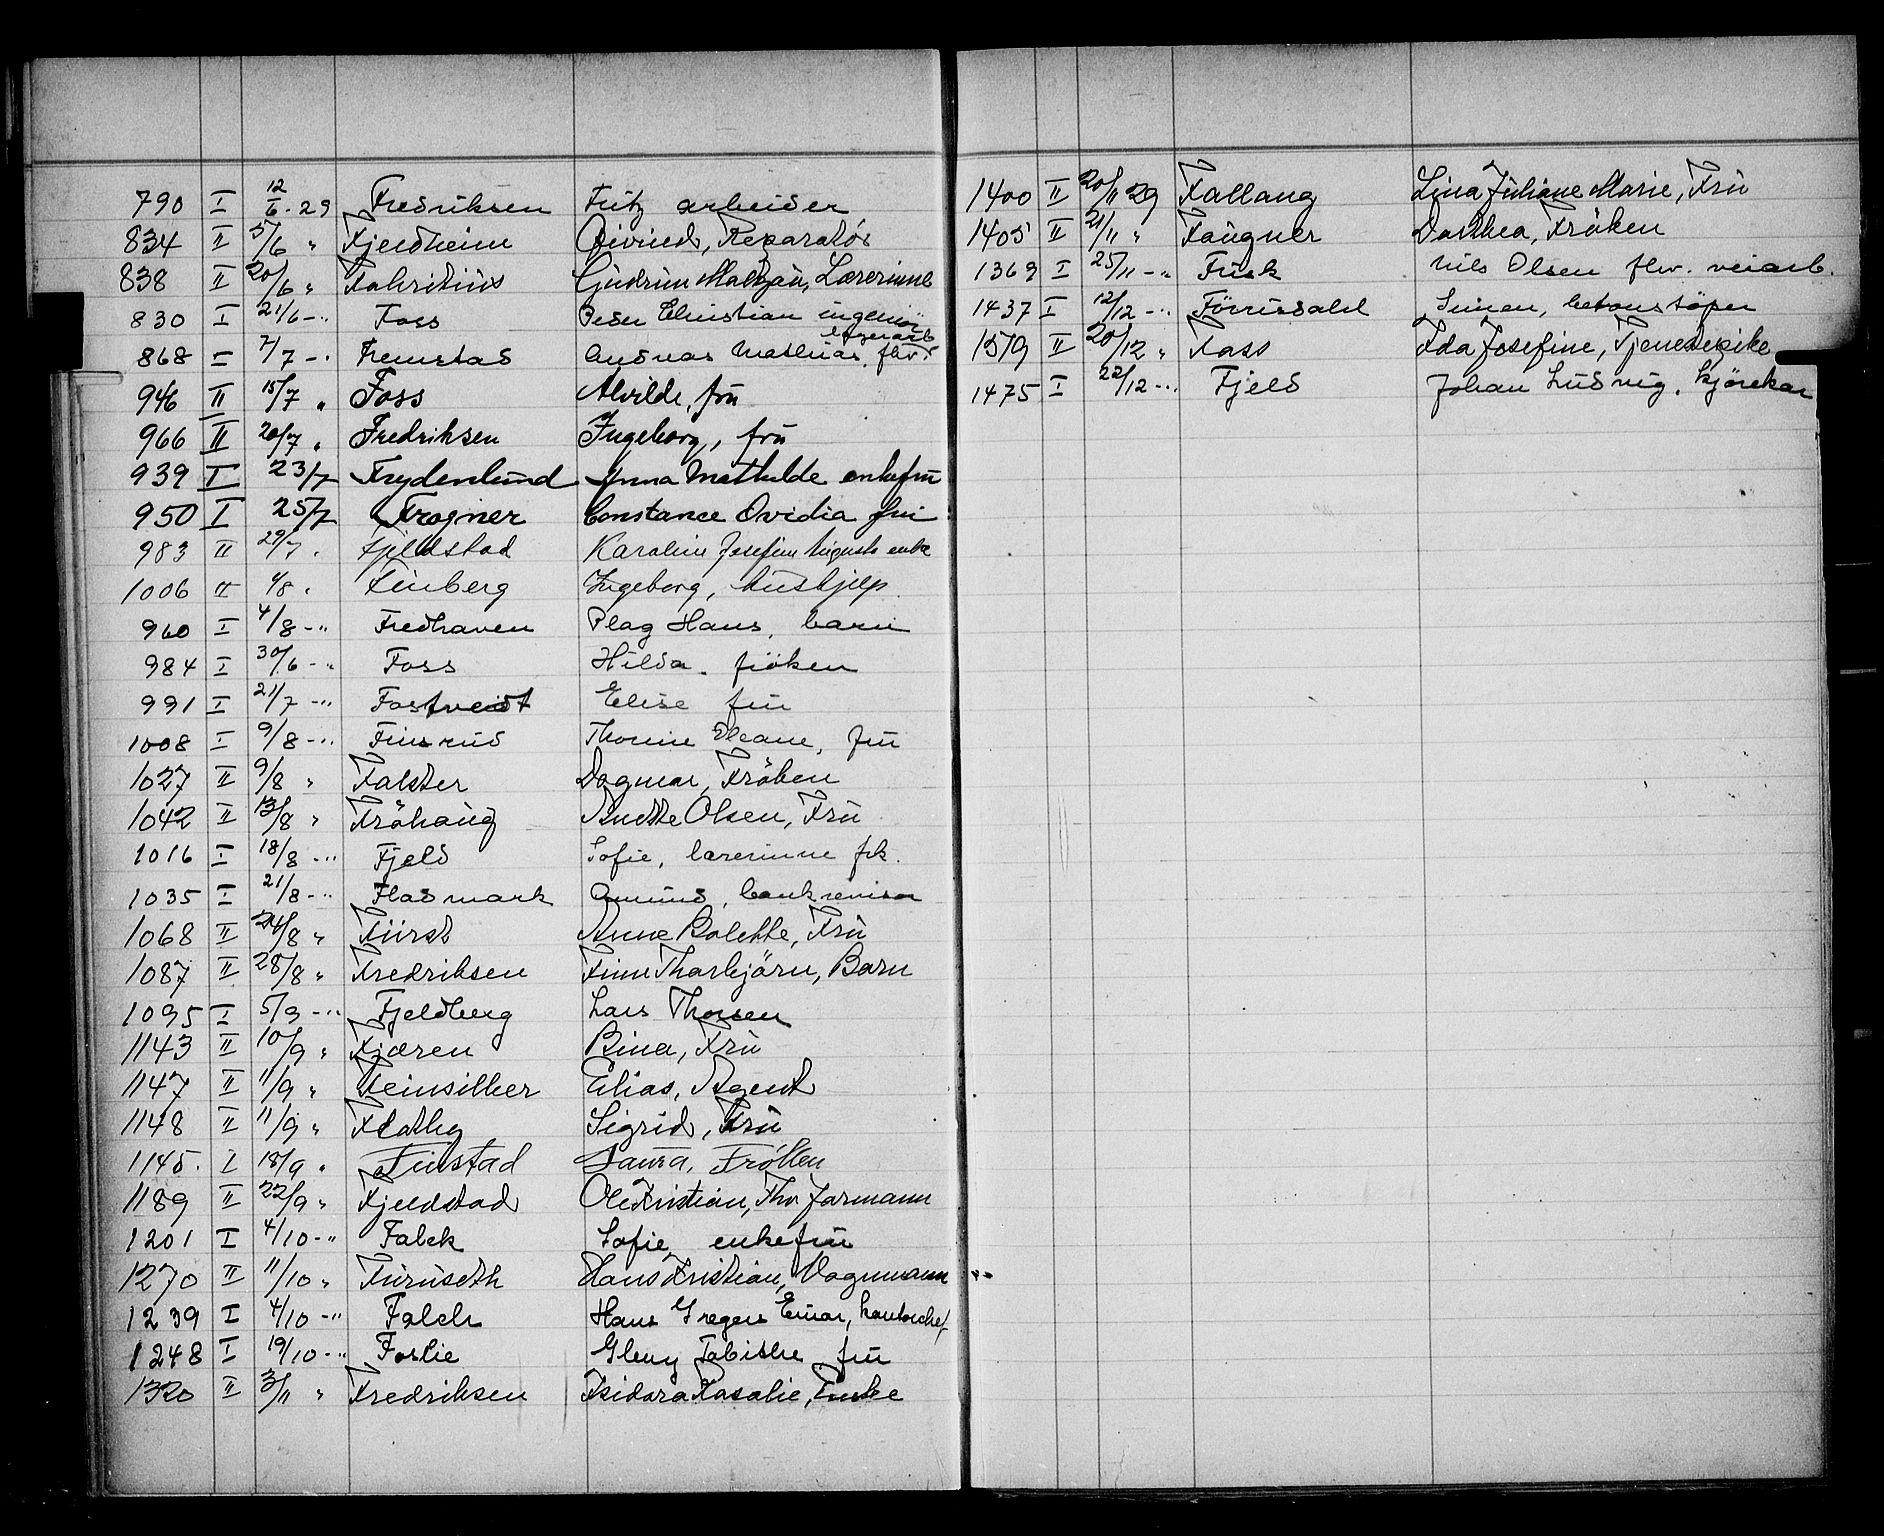 790 I 12/6-29 Fredriksen Fritz arbeider
834 II 5/6 " Fjeldheim Eivind, Reparatør
838 II 20/6 " Fabritius Gudrun Maltzau, Lærerinne
830 I 21/6 -" Foss Peder Christian ingeniør
868 I 7/7 -" Fremstad Andreas Mathias, fhv. lagerarb.
946 II 15/7 " Foss Alvilde, frü
966 II 20/7 " Fredriksen Ingeborg, frü
939 I 23/7 Frydenlund Anna Mathilde enkefrü
950 I 25/7 Frogner Constance Ovidia frü
983 II 29/7 " Fjeldstad Karoline Josefine Augusta enke
1006 II 4/8 " Finberg Ingeborg, hushjelp
960 I 4/8 -" Fredhaven Plag Hans, barn
984 I 30/6 -" Foss Hilda, frøken
991 I 21/7 -" Fostveidt Elise frü
1008 I 9/8 -" Finsrud Thorine Oleane, frü
1027 II 9/8 " Falster Dagmar, Fröken
1042 II 13/8 " Fröhaug Anette Olsen, Frü
1016 I 18/8 -" Fjeld Sofie, lærerinne frk.
1035 I 21/8 -" Fladmark Amund, bankrevisor
1068 II 24/8 " Fürst Anne Bolette, Frü
1087 II 28/8 " Fredriksen Finn Thorbjörn, Barn
1095 I 5/9 -" Fjeldberg Lars Thorsen
1143 II 10/9 " Fjæren Bina, Frü
1147 II 11/9 " Feinsilber Elias, Agent
1148 II 11/9 " Flatby Sigrid, Frü
1145. I 18/9 " Finstad Laura, Frøken
1189 II 22/9 " Fjeldstad Ole Kristian, Fhv Formann
1201 I 4/10 -" Falck Sofie enkefrü
1270 II 11/10 " Furuseth Hans Kristian, Vognmann
1239 I 4/10 -" Falch Hans Gregers Einar, kontorchef
1248 I 19/10 -" Foslie Gleny Tobiske frü
1320 II 3/11 " Fredriksen Isidora Rosalie, Enke
1400 II 20/11 29 Fallang Lina Juliane Marie, Frü
1405 II 21/11 " Faugner Dorthea, Fröken
1369 I 25/11 -" Fusk Nils Olsen fhv. veiarb.
1437 I 12/12 -" Förrisdahl Simen, betonstöper
1519 II 20/12 " Foss Ida Josefine, Tjenestepike
1475 I 22/12 -" Fjeld Johan Ludvig, kjörekar